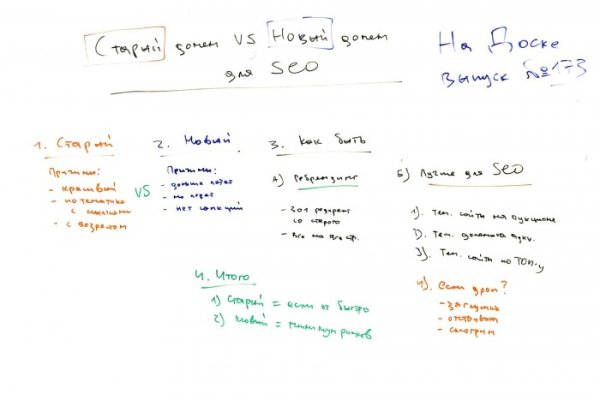 Старый домен VS Новый домен
для SEO
На Доске
выпуск №173
1. Старый
Причины:
- красивый
- по тематике
с ссылками
- с возрастом
VS
2. Новый
Причины:
- дольше
- нет санкций
3. Как быть
А) Ребрендинг
- 301 редирект
со старого
- Все на все стр.
Б) Лучше для SEO
1). Тем. сайты на аукционе
2). Тем. домены
3). Тем. сайты по ТОПу
4). если дроп?
- заглушка
- отстоялся
- смотрим
4. Итого
1) Старый = если ок быстро
2) Новый = минимум рисков